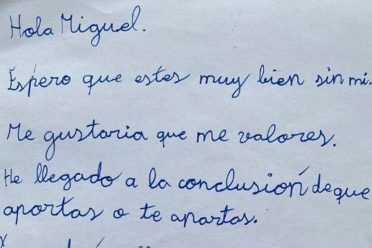 Hola Miguel.
Espero que estes muy bien sin mi.
Me gustaria que me valores.
He llegado a la conclusión de que
aportas o te apartas.